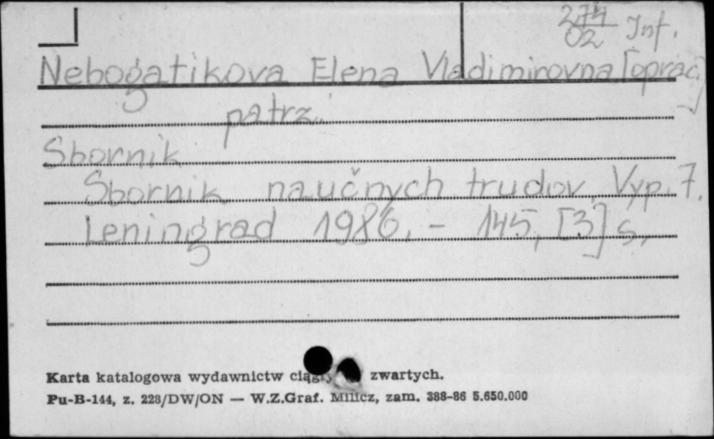 274
02 Inf.
Nebogatikova Elena Vladimirovna [oprac.]
patrz:
Sbornik
Sbornik naučnych trudov. Vyp. 7.
Leningrad 1986. - 145, [3] s.
Karta katalogowa wydawnictw zwartych.
Pu-B-144, z. 228/DW/ON — W.Z.Graf. Milicz, zam. 388-86 5.650.000